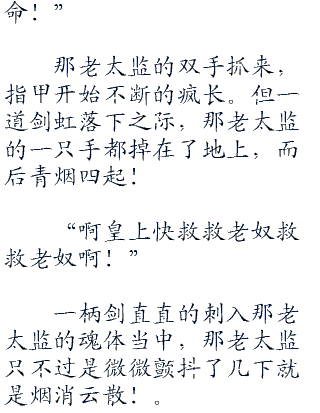 命！”
那老太监的双手抓来，
指甲开始不断的疯长。但一
道剑虹落下之际，那老太监
的一只手都掉在了地上，而
后青烟四起！
“啊皇上快救救老奴救
救老奴啊！”
一柄剑直直的刺入那老
太监的魂体当中，那老太监
只不过是微微颤抖了几下就
是烟消云散！。